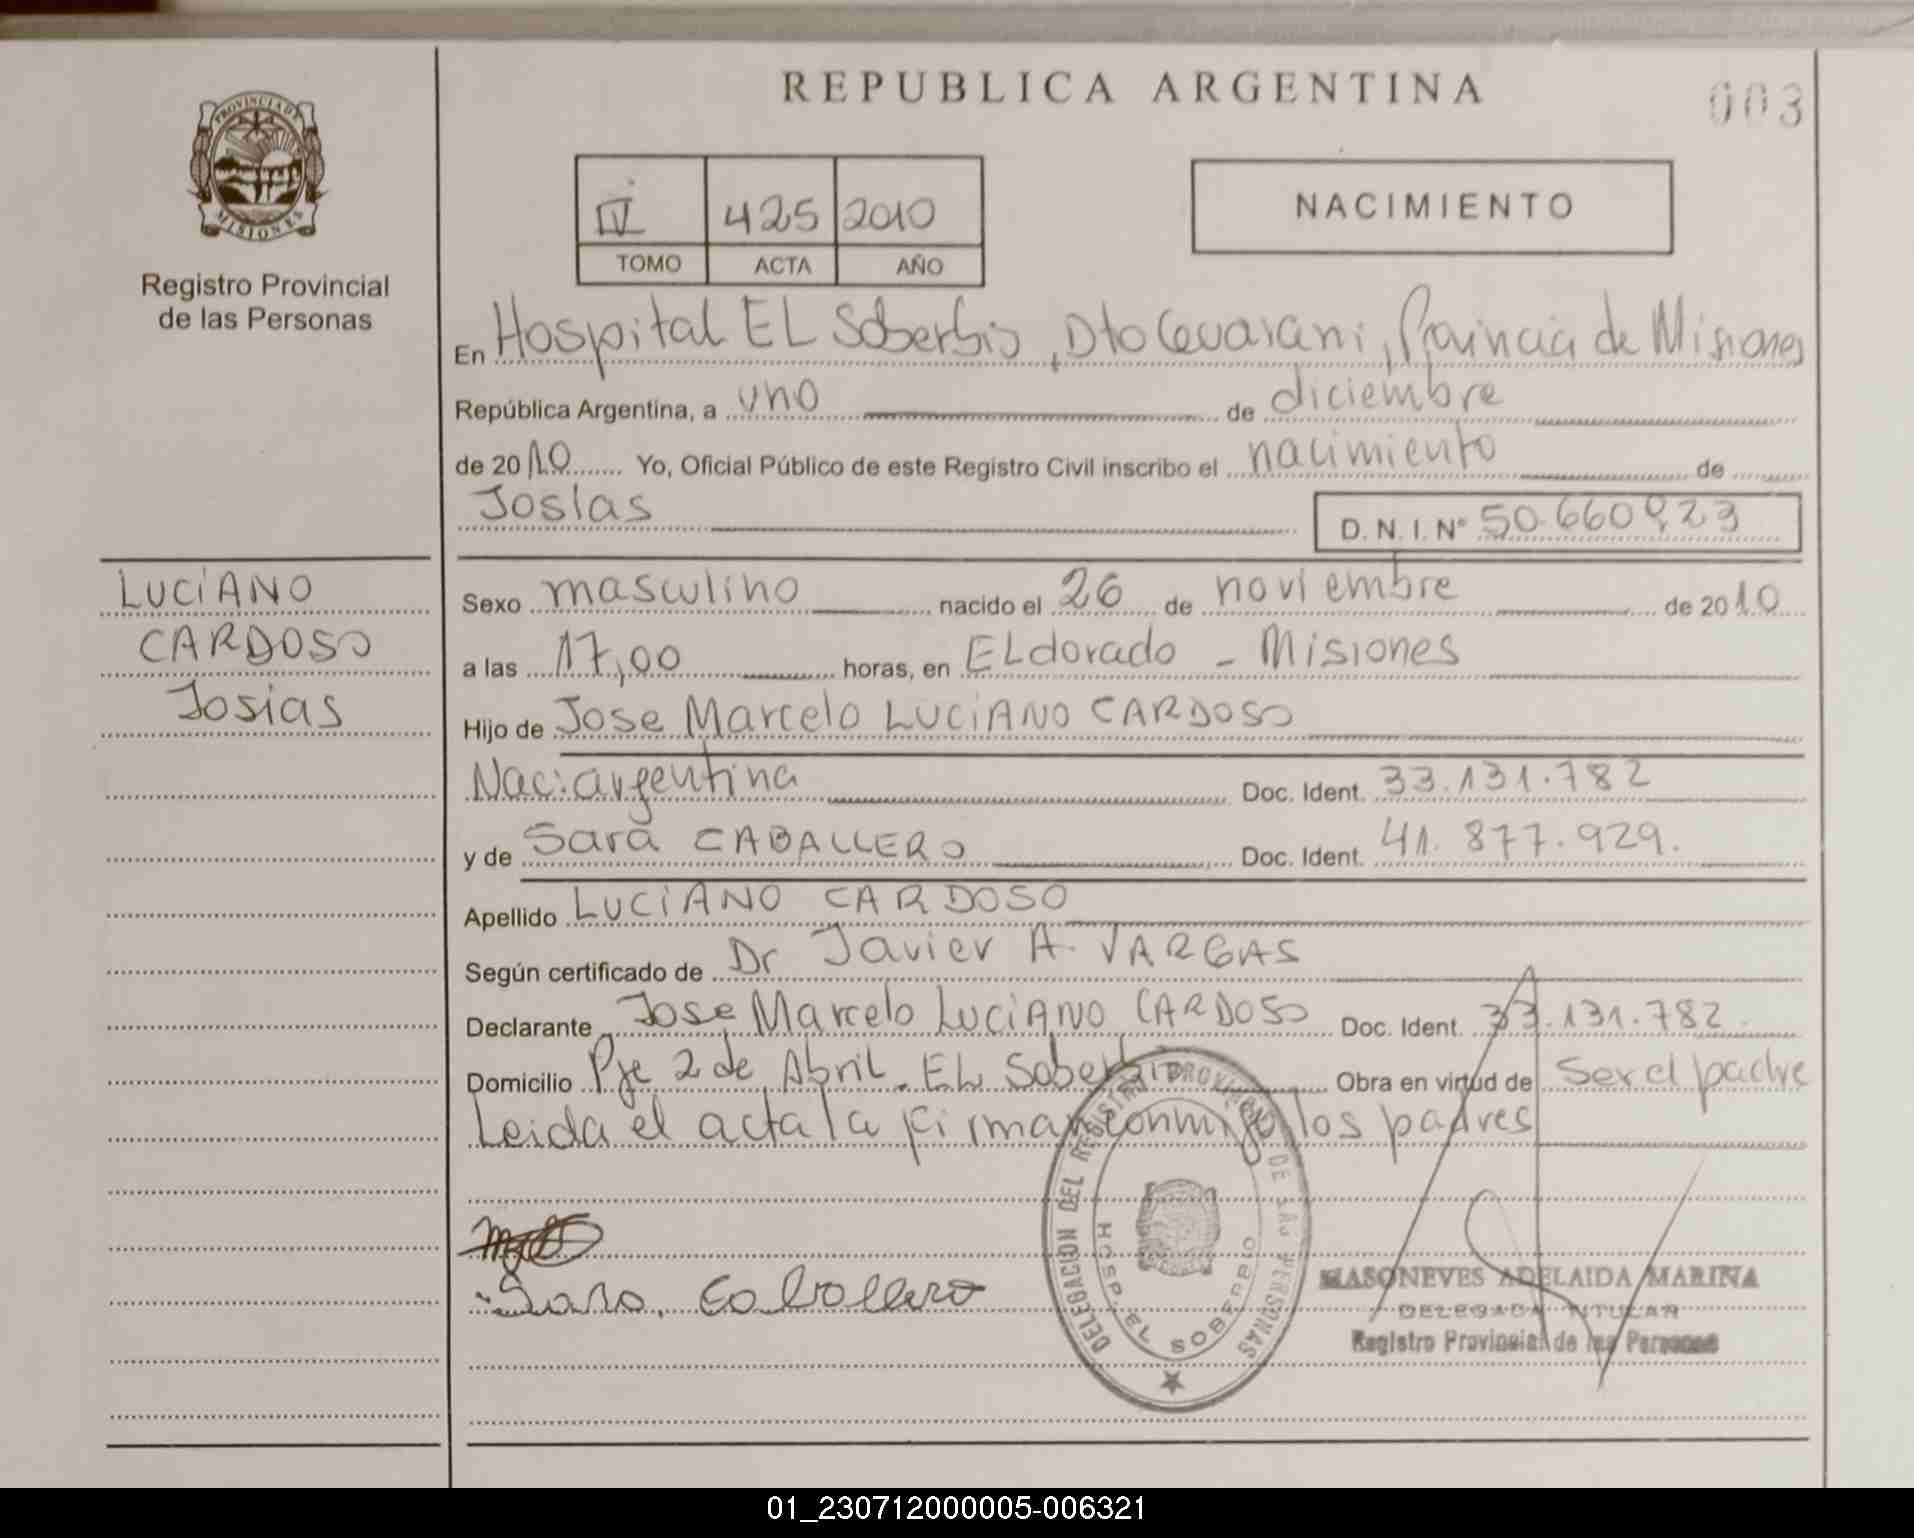 REPUBLICA ARGENTINA
003
PROVINCIA DE MISIONES
Registro Provincial
de las Personas
IV 425 2010
TOMO ACTA AÑO
NACIMIENTO
En Hospital EL Soberbio, Dto Guaraní, Provincia de Misiones
República Argentina, a uno de diciembre
de 2010 Yo, Oficial Público de este Registro Civil inscribo el nacimiento de
Josias
D. N. I. N° 50.660.923
LUCiANO
CARDOSO
Josias
Sexo masculino nacido el 26 de noviembre de 2010
a las 17,00 horas, en ELdorado - Misiones
Hijo de Jose Marcelo LUCiANO CARDOSO
Nac: argentina Doc. Ident. 33.131.782
y de Sara CABALLERO Doc. Ident. 41.877.929.
Apellido LUCiANO CARDOSO
Según certificado de Dr Javier A. VARGAS
Declarante Jose Marcelo LUCiANO CARDOSO Doc. Ident. 33.131.782.
Domicilio Pje 2 de Abril. EL Soberbio Obra en virtud de Ser el padre
Leida el acta la firman conmigo los padres
Sara Caballero
DELEGACION DEL REGISTRO PROVINCIAL DE LAS PERSONAS
HOSP. EL SOBERBIO
MASONEVES ADELAIDA MARINA
DELEGADA TITULAR
Registro Provincial de las Personas
01_230712000005-006321